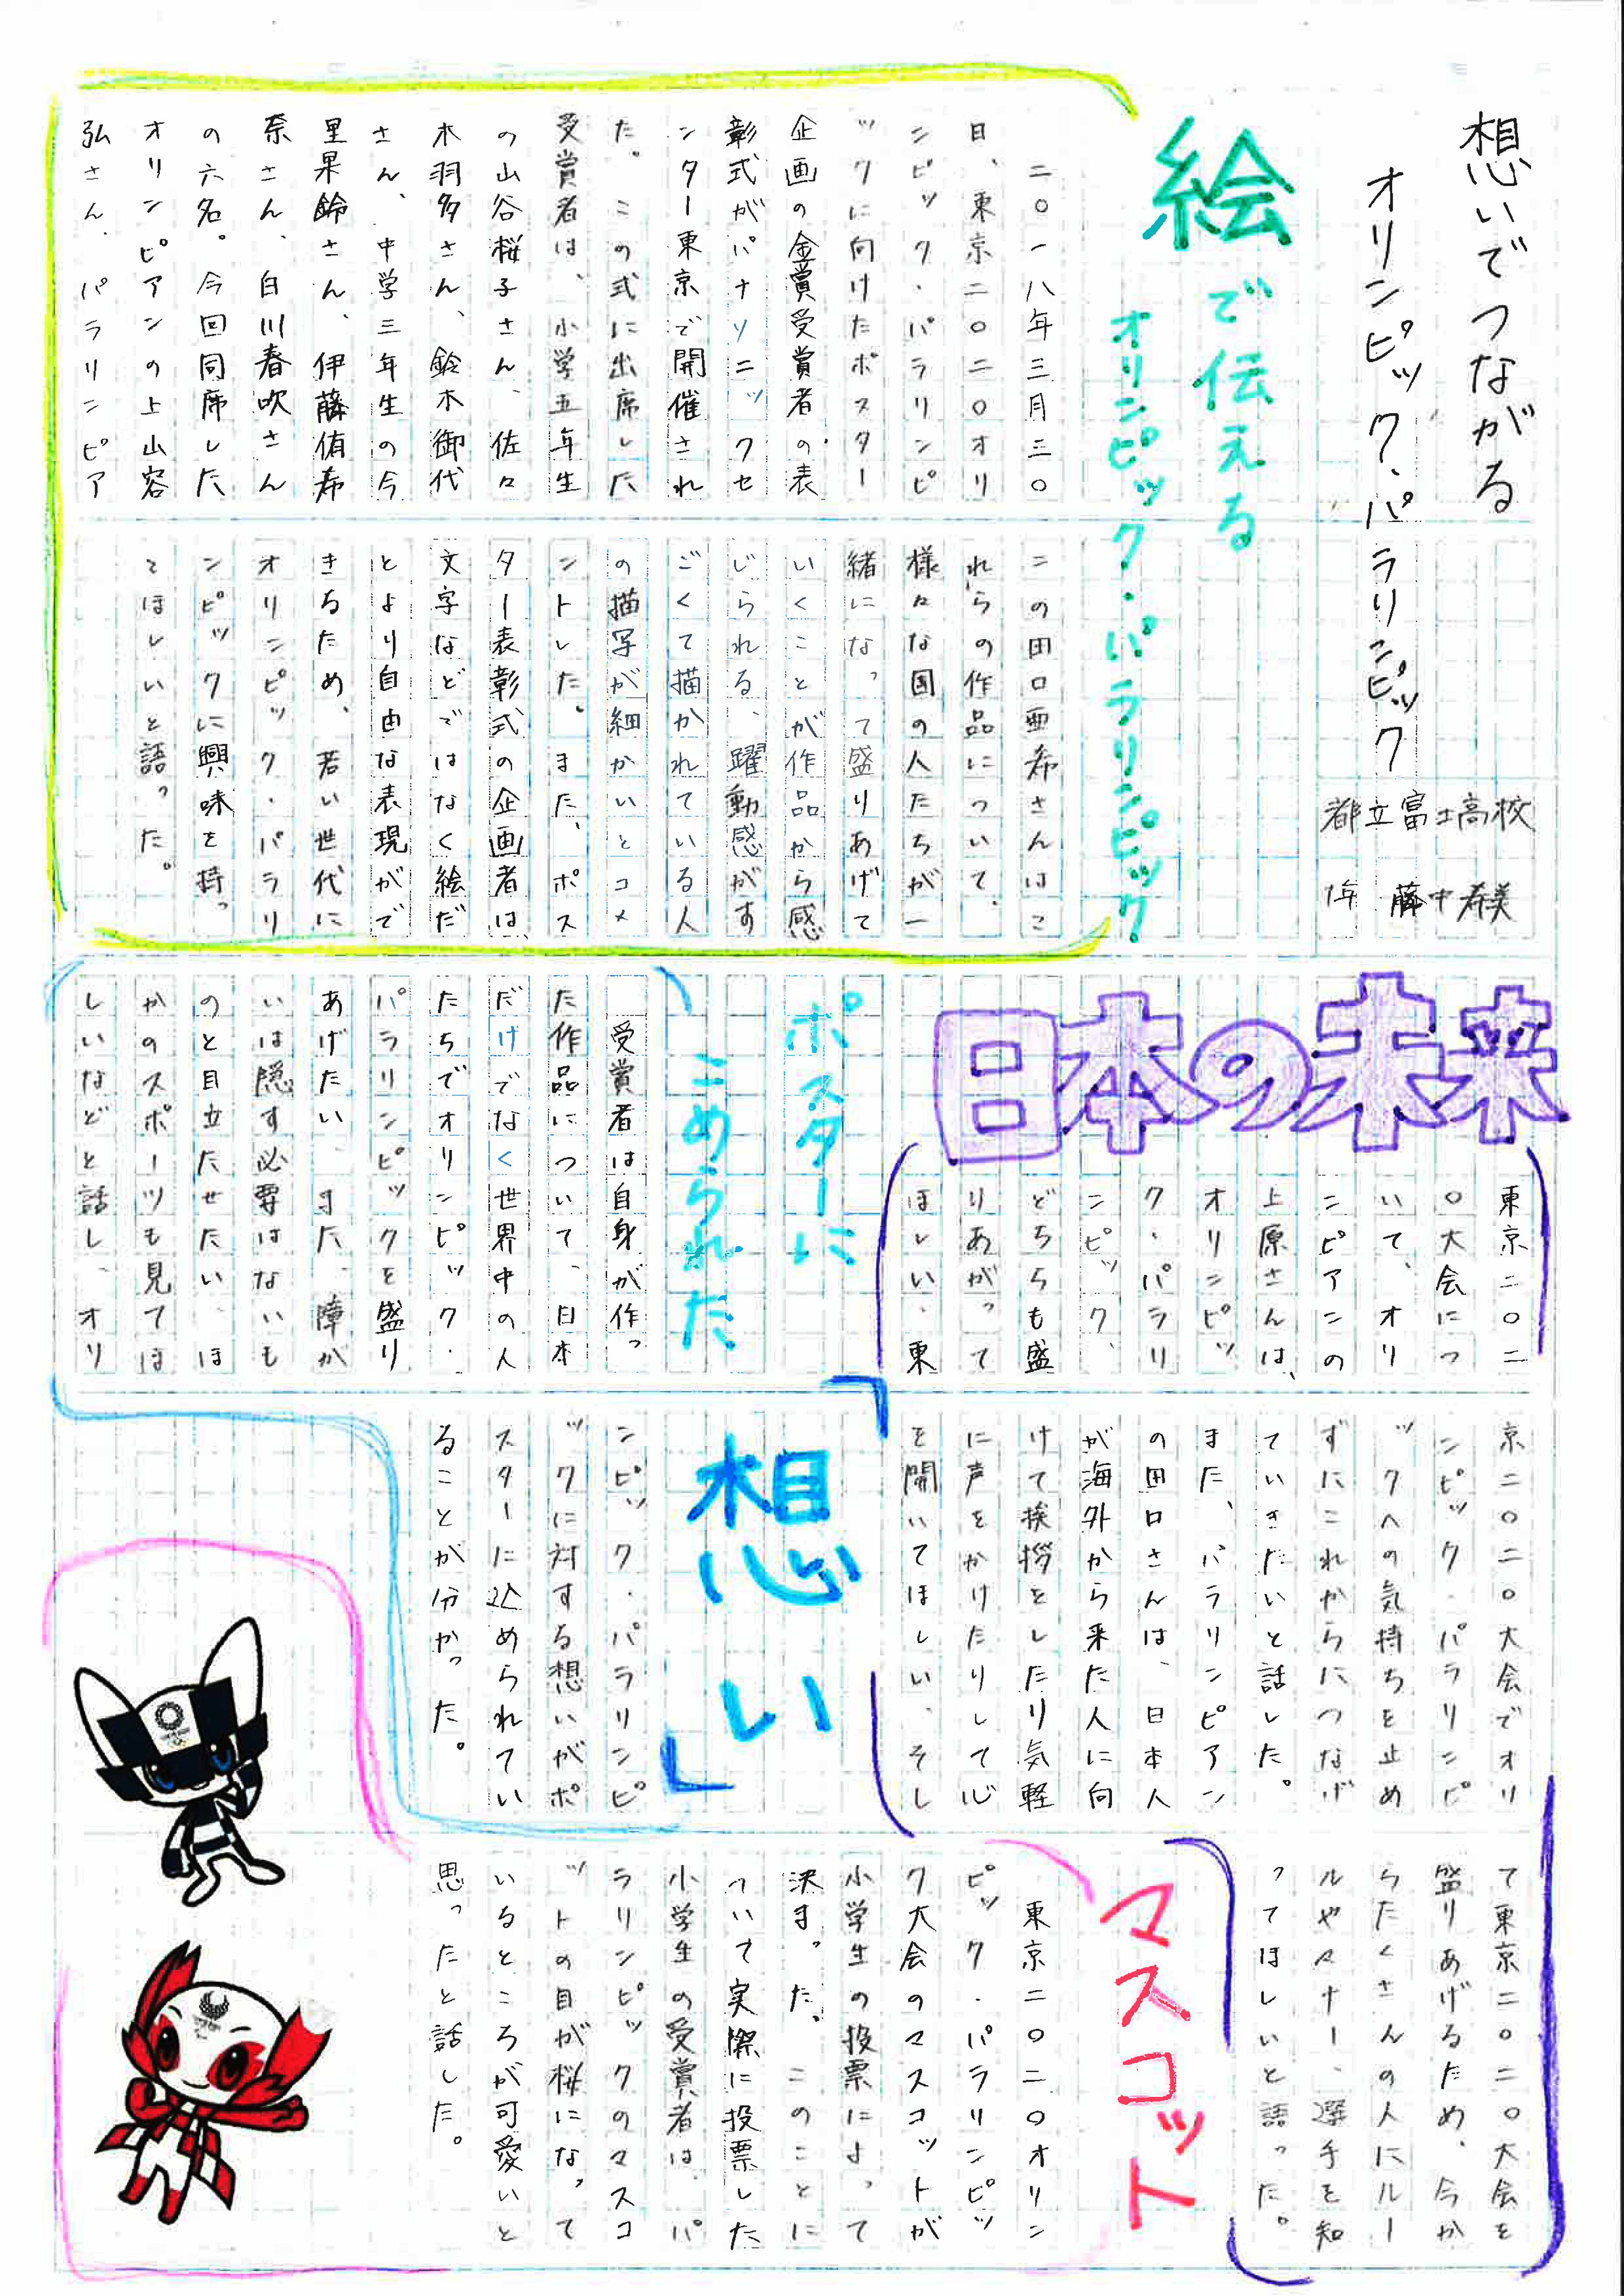 想いでつながる
オリンピック・パラリンピック
都立富士高校
1年 藤中寿美
絵で伝える
オリンピック・パラリンピック
二〇一八年三月三〇
日、東京二〇二〇オリ
ンピック・パラリンピ
ックに向けたポスター
企画の金賞受賞者の表
彰式がパナソニックセ
ンター東京で開催され
た。この式に出席した
受賞者は、小学五年生
の山谷桜子さん、佐々
木羽多さん、鈴木御代
さん、中学三年生の今
里果鈴さん、伊藤侑寿
奈さん、白川春吹さん
の六名。今回同席した
オリンピアンの上山容
弘さん、パラリンピア
ンの田口亜希さんはこ
れらの作品について、
様々な国の人たちが一
緒になって盛りあげて
いくことが作品から感
じられる、躍動感がす
ごくて描かれている人
の描写が細かいとコメ
ントした。また、ポス
ター表彰式の企画者は、
文字などではなく絵だ
とより自由な表現がで
きるため、若い世代に
オリンピック・パラリ
ンピックに興味を持っ
てほしいと語った。
日本の未来
東京二〇二
〇大会につ
いて、オリ
ンピアンの
上原さんは、
オリンピッ
ク・パラリ
ンピック、
どちらも盛
りあがって
ほしい、東
京二〇二〇大会でオリ
ンピック・パラリンピ
ックへの気持ちを止め
ずにこれからにつなげ
ていきたいと話した。
また、パラリンピアン
の田口さんは、日本人
が海外から来た人に向
けて挨拶をしたり気軽
に声をかけたりして心
を開いてほしい、そし
て東京二〇二〇大会を
盛りあげるため、今か
らたくさんの人にルー
ルやマナー、選手を知
ってほしいと語った。
ポスターに
こめられた
「想い」
受賞者は自身が作っ
た作品について、日本
だけでなく世界中の人
たちでオリンピック・
パラリンピックを盛り
あげたい、また、障が
いは隠す必要はないも
のと目立たせたい、ほ
かのスポーツも見てほ
しいなどと話し、オリ
ンピック・パラリンピ
ックに対する想いがポ
スターに込められてい
ることが分かった。
マスコット
東京二〇二〇オリン
ピック・パラリンピッ
ク大会のマスコットが
小学生の投票によって
決まった。このことに
ついて実際に投票した
小学生の受賞者は、パ
ラリンピックのマスコ
ットの目が桜になって
いるところが可愛いと
思ったと話した。